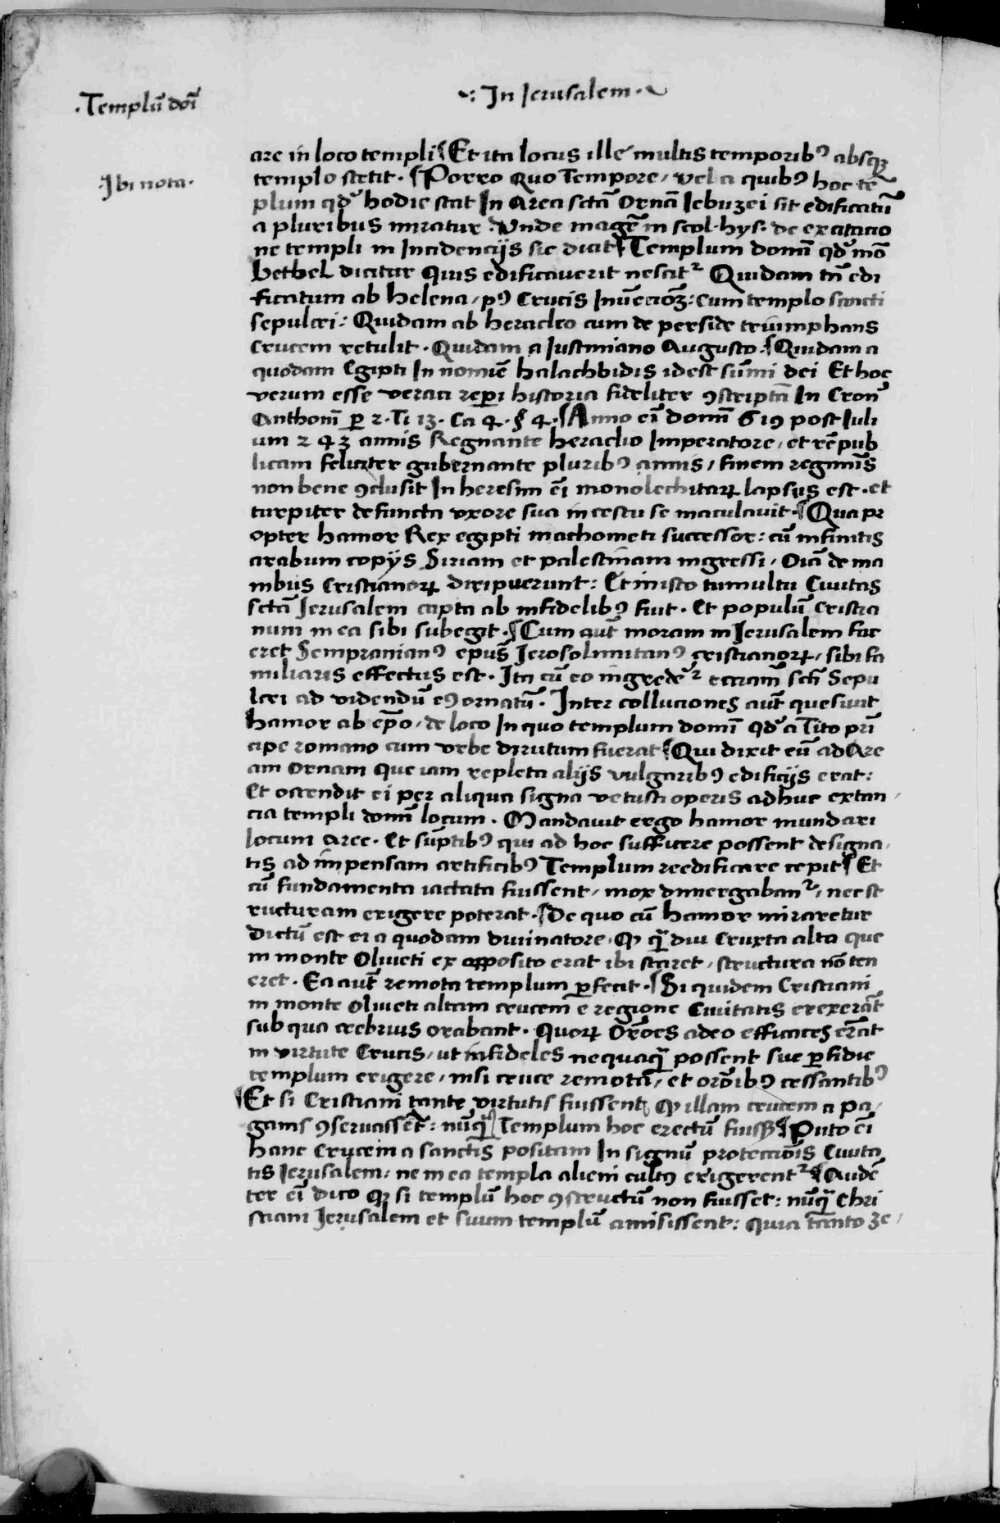 ·Templū dōi
~: In Jerusalem ·~
are in loco templi ¶ Et ita locus ille multis temporibꝰ absqꝫ
·Ibi nota·
templo stetit · ¶ Porro quo Tempore / vel a quibꝰ hoc tē
plum qd' hodie stat In Area sctā Ornā Iebuzei sit edificatū
a pluribus miratur · Unde magēr in scol · hys · de excitacio
ne templi in Incidencijs sic dicit ¶ Templum domī qd' mō
bethel dicitur Quis edificauerit nescit² Quidam tn̄ edi
ficatum ab helena / pꝰ Crucis Inūecioꝫ : cum templo sancti
sepulcri : Quidam ab heracleo cum de perside triumphans
Crucem retulit · Quidam a Iustiniano Augusto · ¶ Quidam a
quodam Egipti In nomīe halachbidis idest sūmi dei Et hoc
verum esse veraci rep̄i historia fideliter ꝯscriptā In Cron̄
Anthonī p̱ 2 · Ti 13 · Ca 4 · § 4 · ¶ Anno eī domī 619 post Iuli
um 2 43 annis Regnante heraclio Imperatore / et rēpub
licam feliciter gubernante pluribꝰ annis / finem regimīs
non bene ꝯclusit In heresim eī monolechitaꝝ lapsus est · et
turpiter defuncta vxore sua incestu se maculauit · ¶ Qua pr
opter hamor Rex egipti machometi successor : cū infinitis
arabum copijs Siriam et palestinam ingressi / Oīa de ma
nibus Cristianoꝝ diripuerunt : Et in isto tumultu Ciuitas
sctā Jerusalem capta ab infidelibꝰ fuit · Et populū Cristia
num in ea sibi subegit · ¶ Cum aut̄ moram in Jerusalem fac
eret Sempranianꝰ ep̄us Jerosolimitanꝰ cristianoꝝ / sibi fa
miliaris effectus est · Ita cū eo ingrede² ecciam sctī Sepu
lcri ad videndū eꝰ ornatū · Inter colluciones aut̄ quesiuit
hamor ab ep̄o / de loco In quo templum domī qd' a Tito pri
cipe romano cum vrbe dirutum fuerat ¶ Qui dixit eū ad Are
am Ornam Que iam repleta alijs vulgaribꝰ edificijs erat :
Et ostendit ei per aliqua signa vetusti operis adhuc extan /
cia templi domī locum · Mandauit ergo hamor mundari
locum Aree · Et sūptibꝰ qui ad hoc sufficere possent designa /
tis ad impensam artificibꝰ Templum reedificare cepit ¶ Et
cū fundamenta iactata fuissent / mox diuergaban² / nec st
ructuram erigere poterat · ¶ De quo cū hamor miraretur
dictū est ei a quodam diuinatore · Qꝫ qͣdiu Cruxta alta que
in monte Oliueti ex opposito erat ibi staret / structura nō ten
eret · Ea aut̄ remota templum p̱fecit · ¶ Si quidem Cristiani
in monte Oliueti altam crucem e regione Ciuitatis erexerāt
sub qua crebrius orabant · Quoꝝ Orōes adeo efficaces erāt
in virtute Crucis / ut infideles nequaqͣ possent sue p̱fidie
templum erigere / nisi cruce remota / et orōibꝰ cessantibꝰ
¶ Et si Cristiani tante virtutis fuissent qꝫ illam crucem a pa /
ganis ꝯseruassēt : nūqͣ Templum hoc erectū fuisꝫ ¶ Puto eī
hanc Crucem a sanctis positam In signū protecciōis Ciuita
tis Jerusalem / ne in ea templa alieni cultꝰ erigerent² ¶ Audē
ter eī dico qꝫ si templū hoc ꝯstructū non fuisset : nūqͣ Chri
stiani Jerusalem et suum templū amisissent : quia tanto ze /